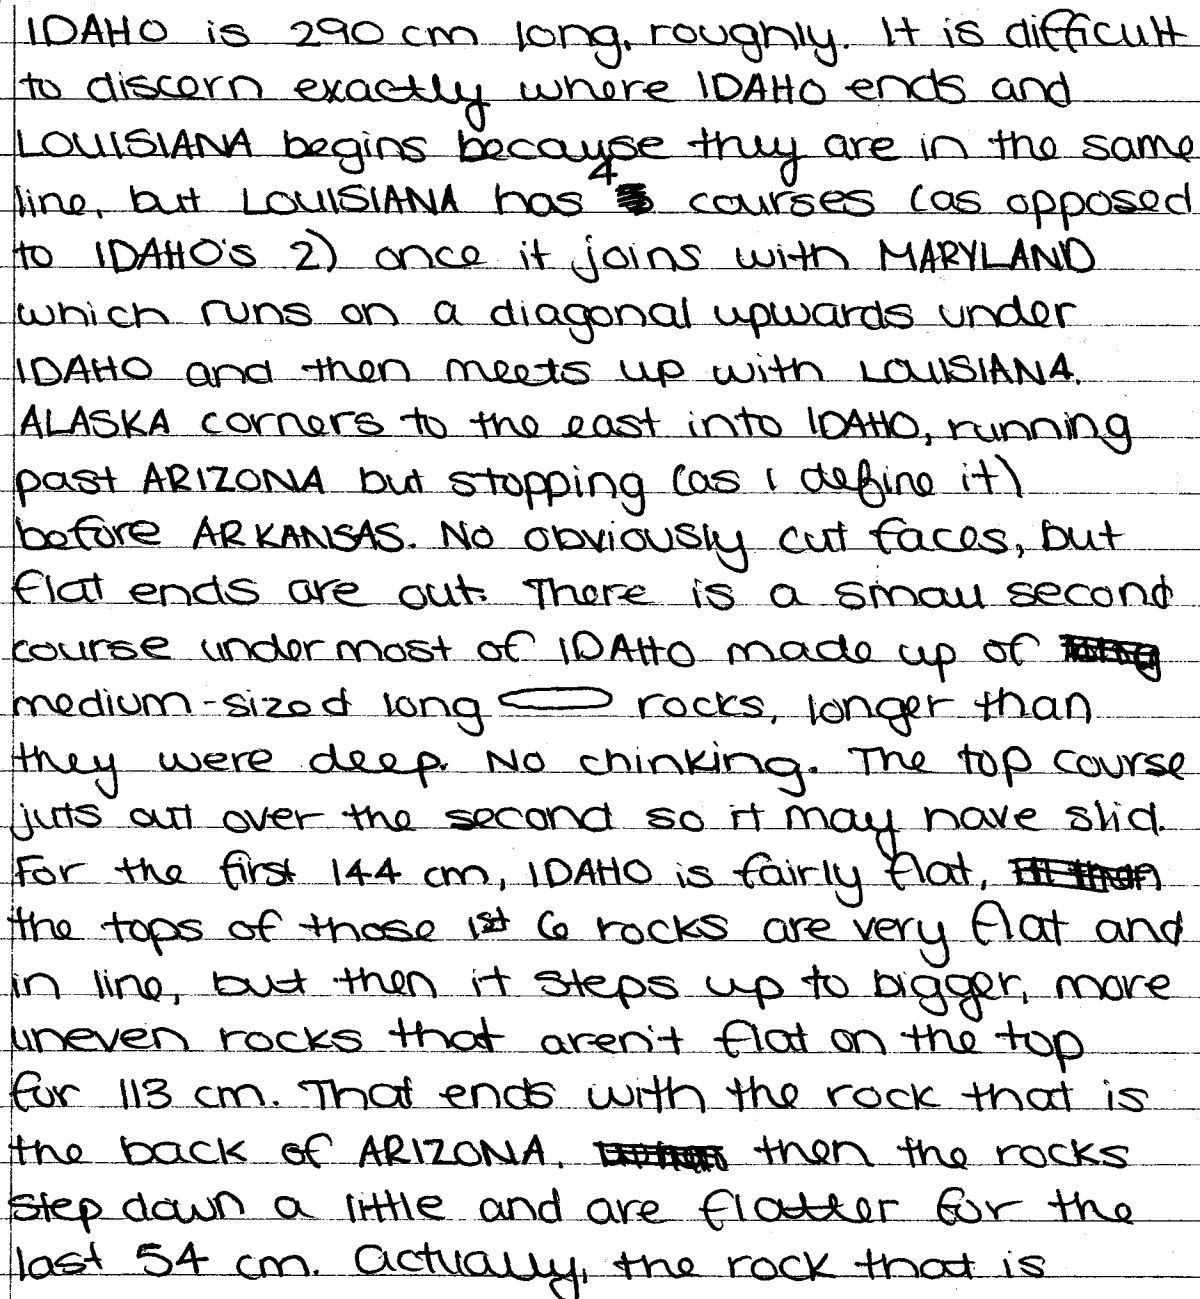 IDAHO is 290 cm long, roughly. It is difficult
to discern exactly where IDAHO ends and
LOUISIANA begins because they are in the same
line, but LOUISIANA has 4 courses (as opposed
to IDAHO's 2) once it joins with MARYLAND
which runs on a diagonal upwards under
IDAHO and then meets up with LOUISIANA.
ALASKA corners to the east into IDAHO, running
past ARIZONA but stopping (as i define it)
before ARKANSAS. No obviously cut faces, but
flat ends are out. There is a small second
course under most of IDAHO made up of
medium-sized long rocks, longer than
they were deep. No chinking. The top course
juts out over the second so it may have slid.
For the first 144 cm, IDAHO is fairly flat,
the tops of those 1st 6 rocks are very flat and
in line, but then it steps up to bigger, more
uneven rocks that aren't flat on the top
for 113 cm. That ends with the rock that is
the back of ARIZONA. then the rocks
step down a little and are flatter for the
last 54 cm. Actually, the rock that is